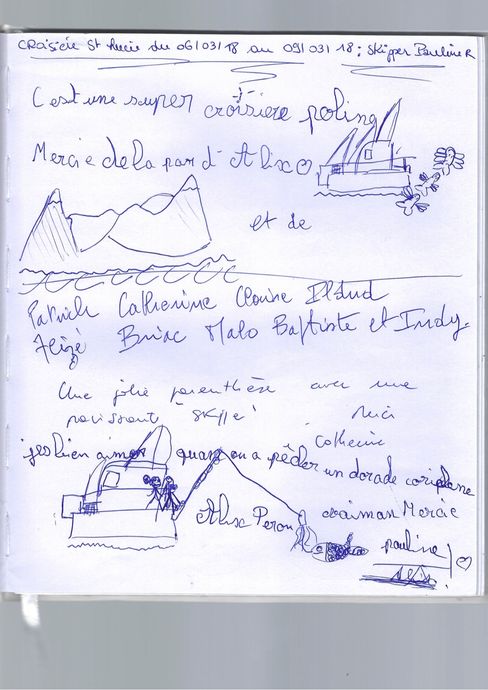 Croisière St Lucie du 06/03/18 au 09/03/18 : Skipper Pauline R
C'est une super croisière poling
Mercie de la par d'Alix ♡
et de
Patrick Catherine Claire
Briac Malo Baptiste et Indy.
Une jolie parenthèse avec une
"skippe" Merci
Catherine
jeobien aimer quang on a pêcher un dorade coriphene
Alix Perou vaiman Mercie
pauline ♡